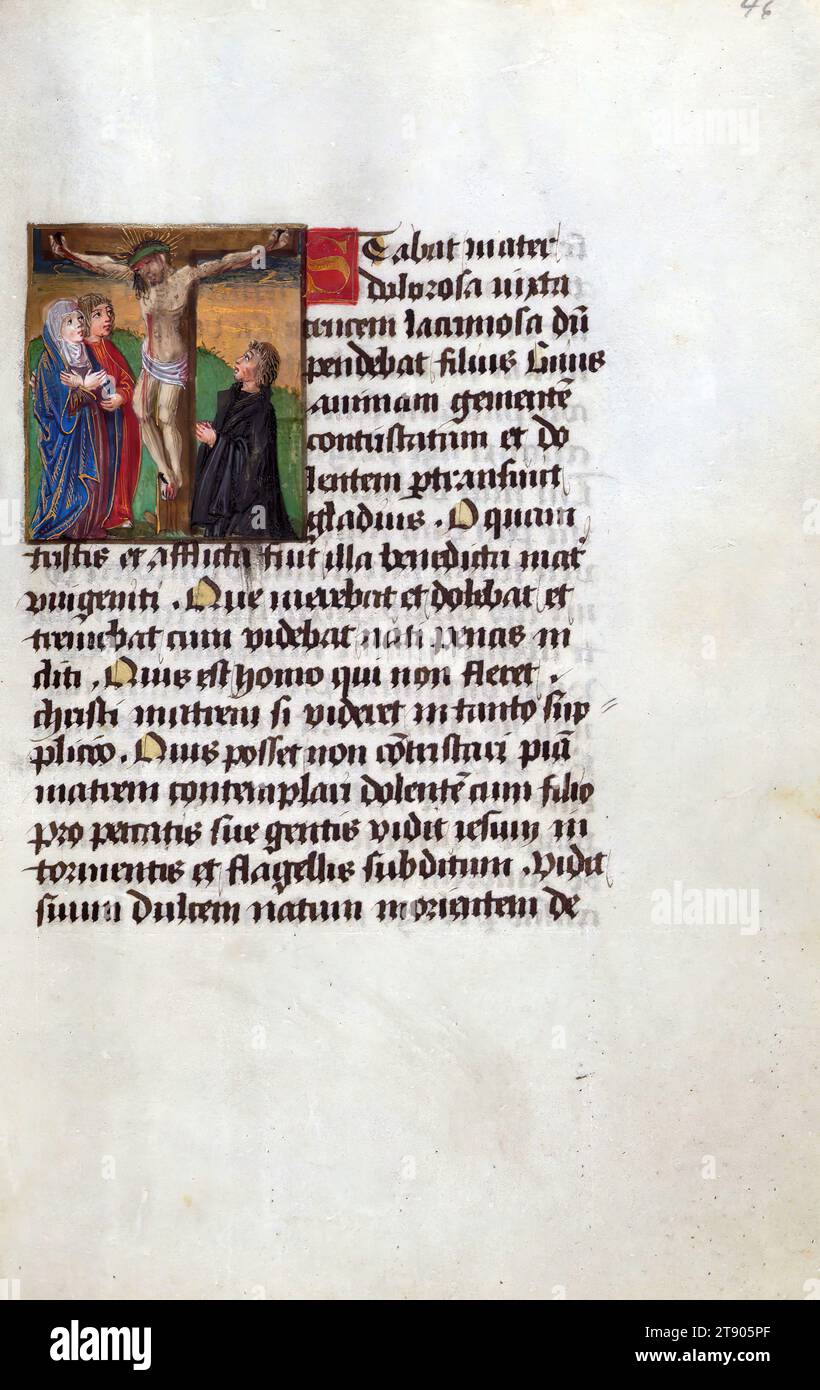 46
Stabat mater
dolorosa iuxta
crucem lacrimosa dū
pendebat filius Cuius
animam gementē
contristatam et do
lentem ꝑtransiuit
gladius . O quam
tristis et afflicta fuit illa benedicta mat᷒
vnigeniti . Que merebat et dolebat et
tremebat cum videbat nati penas in
cliti . Quis est homo qui non fleret .
christi matrem si videret in tanto sup
plicio . Quis posset non cōtristari piā
matrem contemplari dolentē cum filio
pro peccatis sue gentis vidit iesum in
tormentis et flagellis subditum . Vidit
suum dulcem natum morientem de
alamy
Image ID: 2T905PF
www.alamy.com